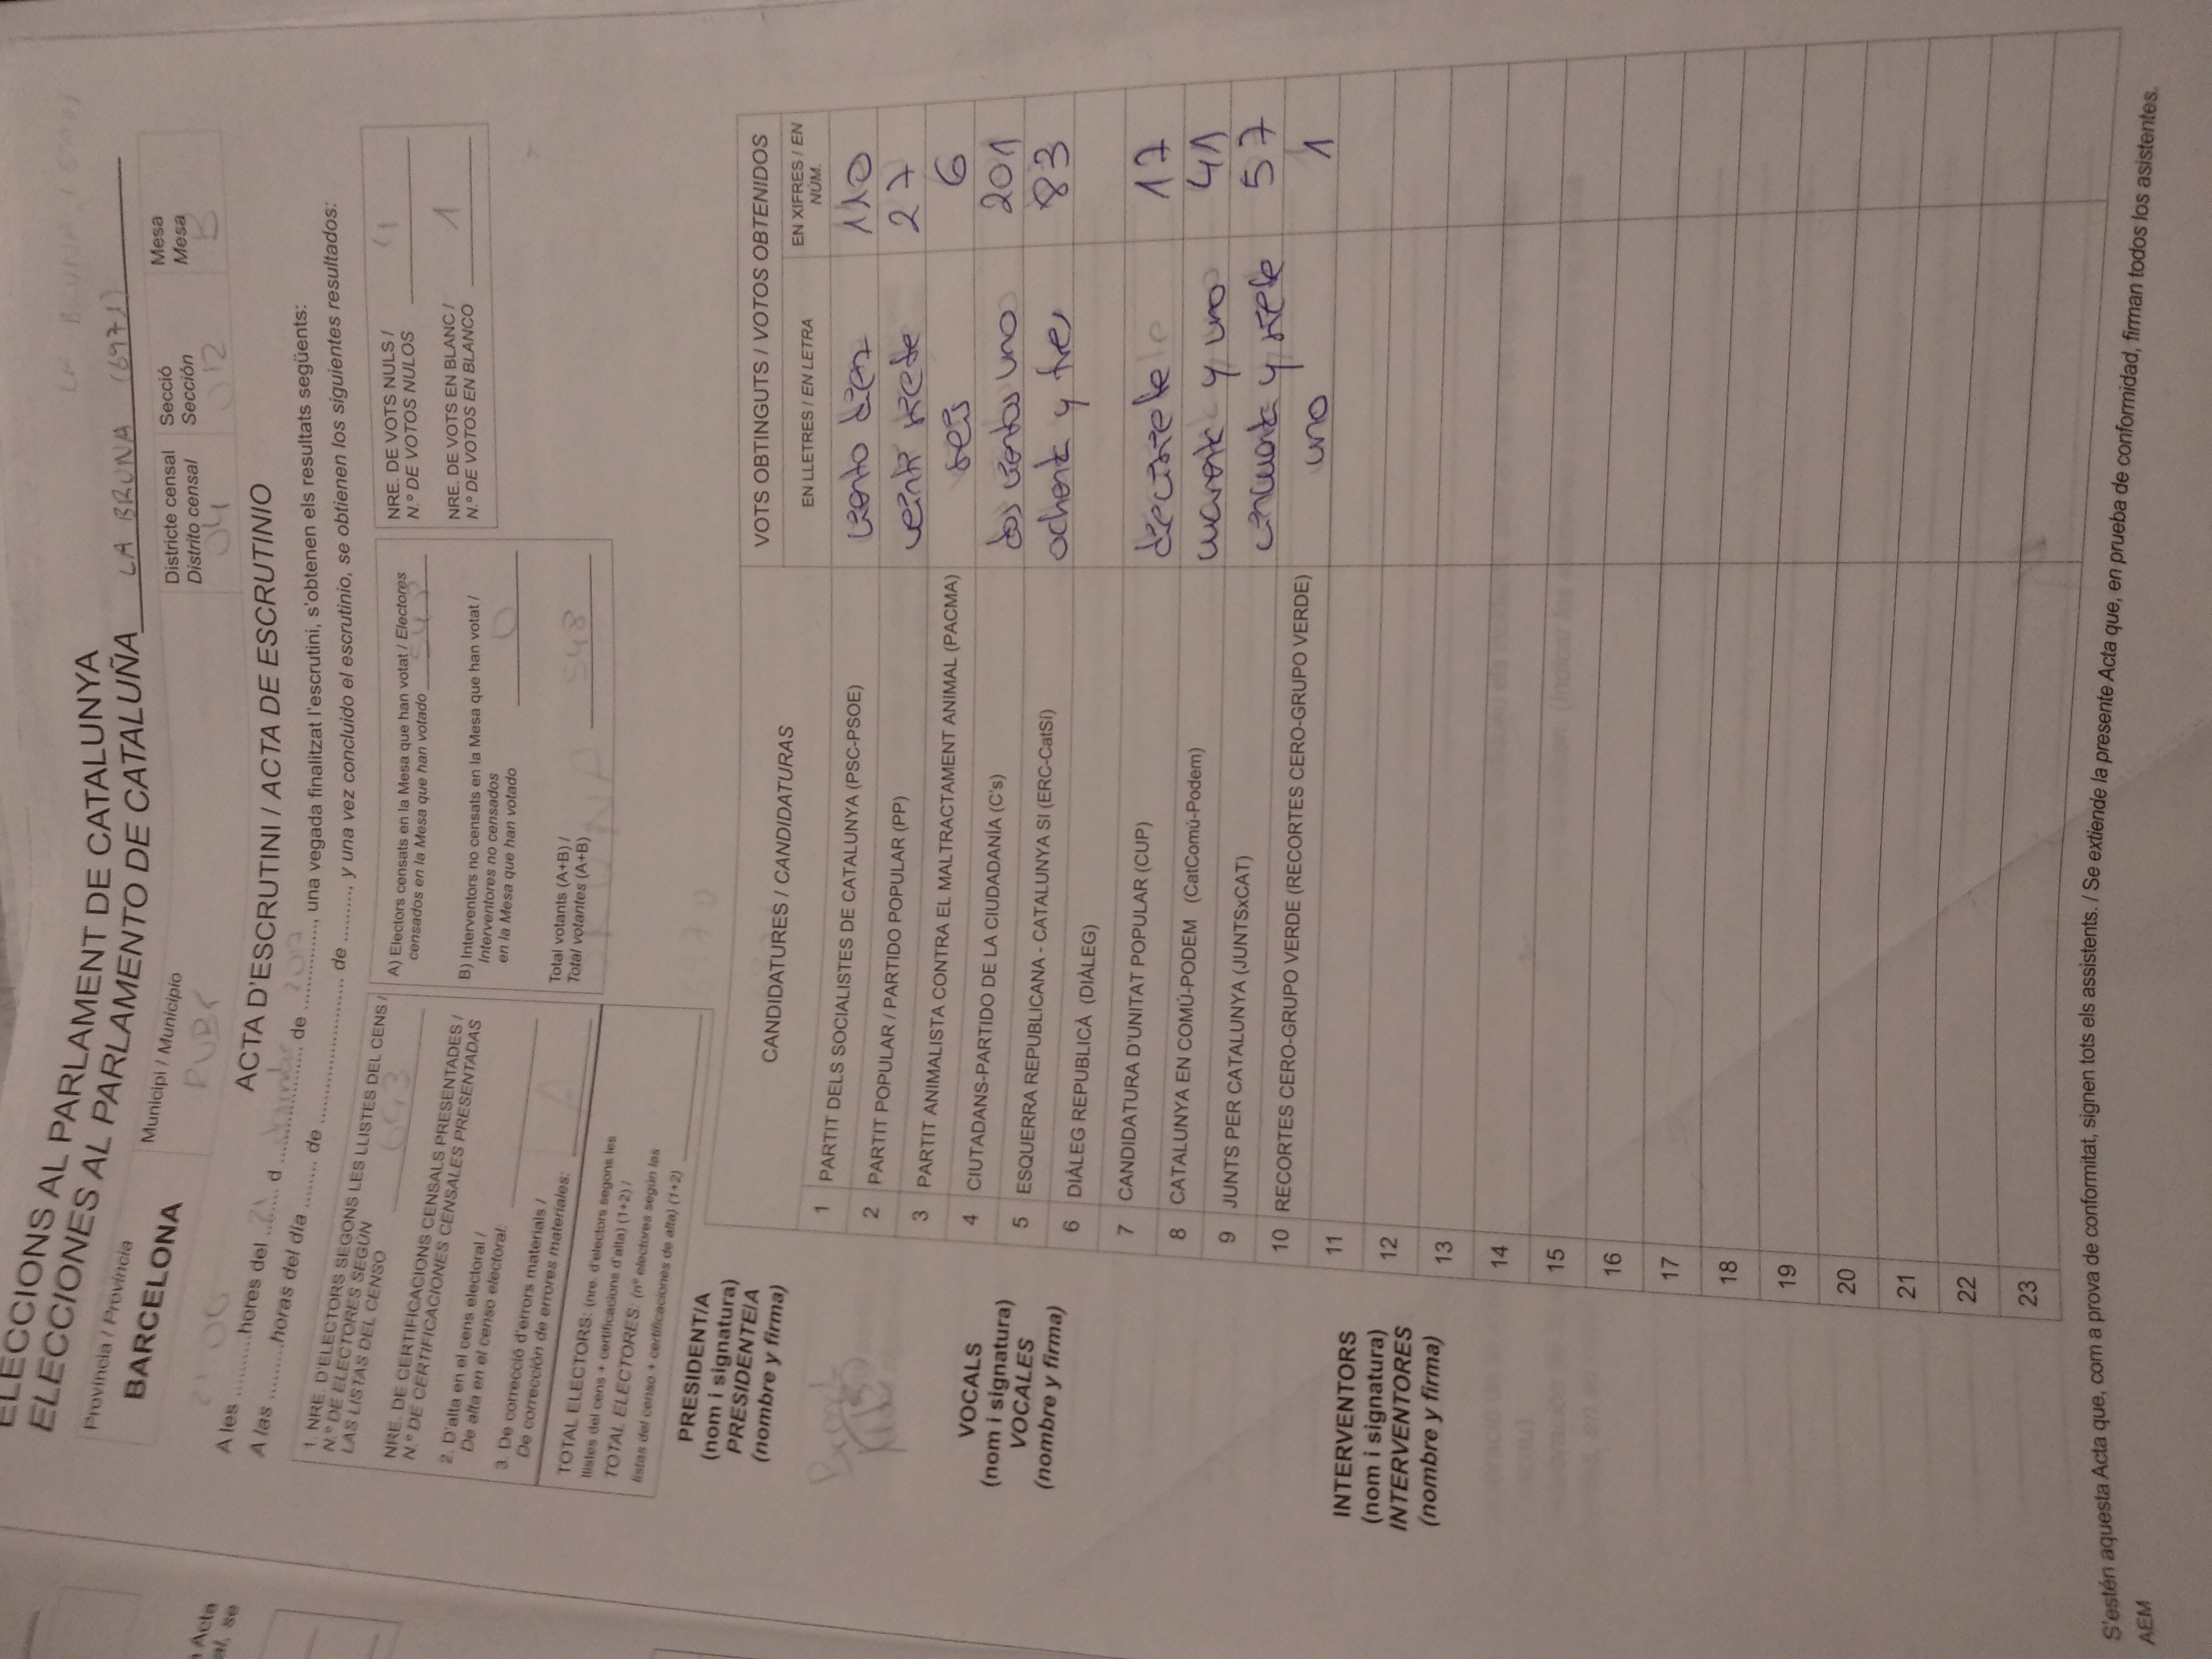 ELECCIONS AL PARLAMENT DE CATALUNYA
ELECCIONES AL PARLAMENTO DE CATALUÑA LA BRUNA (6971)
Província / Provincia
BARCELONA
Municipi / Municipio
Districte censal
Distrito censal
04
Secció
Sección
012
Mesa
Mesa
B
a Acta
al, se
ACTA D'ESCRUTINI / ACTA DE ESCRUTINIO
A les ..........hores del ... 21 ... d ................... de ... 2017 ..., una vegada finalitzat l'escrutini, s'obtenen els resultats següents:
A las .........horas del día ........ de ...................... de ........., y una vez concluido el escrutinio, se obtienen los siguientes resultados:
1. NRE. D'ELECTORS SEGONS LES LLISTES DEL CENS /
N.º DE ELECTORES SEGÚN
LAS LISTAS DEL CENSO
NRE. DE CERTIFICACIONS CENSALS PRESENTADES /
N.º DE CERTIFICACIONES CENSALES PRESENTADAS
2. D'alta en el cens electoral /
De alta en el censo electoral:
3. De correcció d'errors materials /
De corrección de errores materiales:
TOTAL ELECTORS: (nre. d'electors segons les
llistes del cens + certificacions d'alta) (1+2) /
TOTAL ELECTORES: (nº electores según las
listas del censo + certificaciones de alta) (1+2)
A) Electors censats en la Mesa que han votat / Electores
censados en la Mesa que han votado 548
B) Interventors no censats en la Mesa que han votat /
Interventores no censados
en la Mesa que han votado 0
Total votants (A+B) /
Total votantes (A+B) 548
NRE. DE VOTS NULS /
N.º DE VOTOS NULOS 4
NRE. DE VOTS EN BLANC /
N.º DE VOTOS EN BLANCO 1
PRESIDENT/A
(nom i signatura)
PRESIDENTE/A
(nombre y firma)
VOCALS
(nom i signatura)
VOCALES
(nombre y firma)
INTERVENTORS
(nom i signatura)
INTERVENTORES
(nombre y firma)
CANDIDATURES / CANDIDATURAS
VOTS OBTINGUTS / VOTOS OBTENIDOS
EN LLETRES / EN LETRA
EN XIFRES / EN
NÚM.
1 PARTIT DELS SOCIALISTES DE CATALUNYA (PSC-PSOE) ciento diez 110
2 PARTIT POPULAR / PARTIDO POPULAR (PP) veinti siete 27
3 PARTIT ANIMALISTA CONTRA EL MALTRACTAMENT ANIMAL (PACMA) seis 6
4 CIUTADANS-PARTIDO DE LA CIUDADANÍA (C's) dos cientos uno 201
5 ESQUERRA REPUBLICANA - CATALUNYA SI (ERC-CatSí) ochenta y tres 83
6 DIÀLEG REPUBLICÀ (DIÀLEG)
7 CANDIDATURA D'UNITAT POPULAR (CUP) diecisiete 17
8 CATALUNYA EN COMÚ-PODEM (CatComú-Podem) cuarenta y uno 41
9 JUNTS PER CATALUNYA (JUNTSxCAT) cincuenta y siete 57
10 RECORTES CERO-GRUPO VERDE (RECORTES CERO-GRUPO VERDE) uno 1
11
12
13
14
15
16
17
18
19
20
21
22
23
S'estén aquesta Acta que, com a prova de conformitat, signen tots els assistents. / Se extiende la presente Acta que, en prueba de conformidad, firman todos los asistentes.
AEM